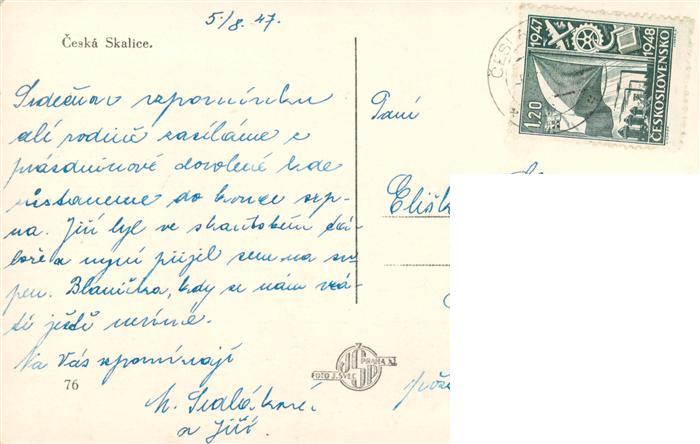 5./8. 47.
Česká Skalice.
Srdečnou vzpomínku
celé rodině zasíláme z
prázdninové dovolené kde
zůstaneme do konce srp-
na. Jiří byl ve skautském tá-
boře a nyní přijel sem na sr-
pen. Blanička, kdy se nám vrá-
tí ještě nevíme.
Na Vás vzpomínají
M. Sedláková
a Jiří.
76
FOTO J. ŠVEC PRAHA XI.
Paní
Elišk
1947
1948
1.20
ČESKOSLOVENSKO
ČES